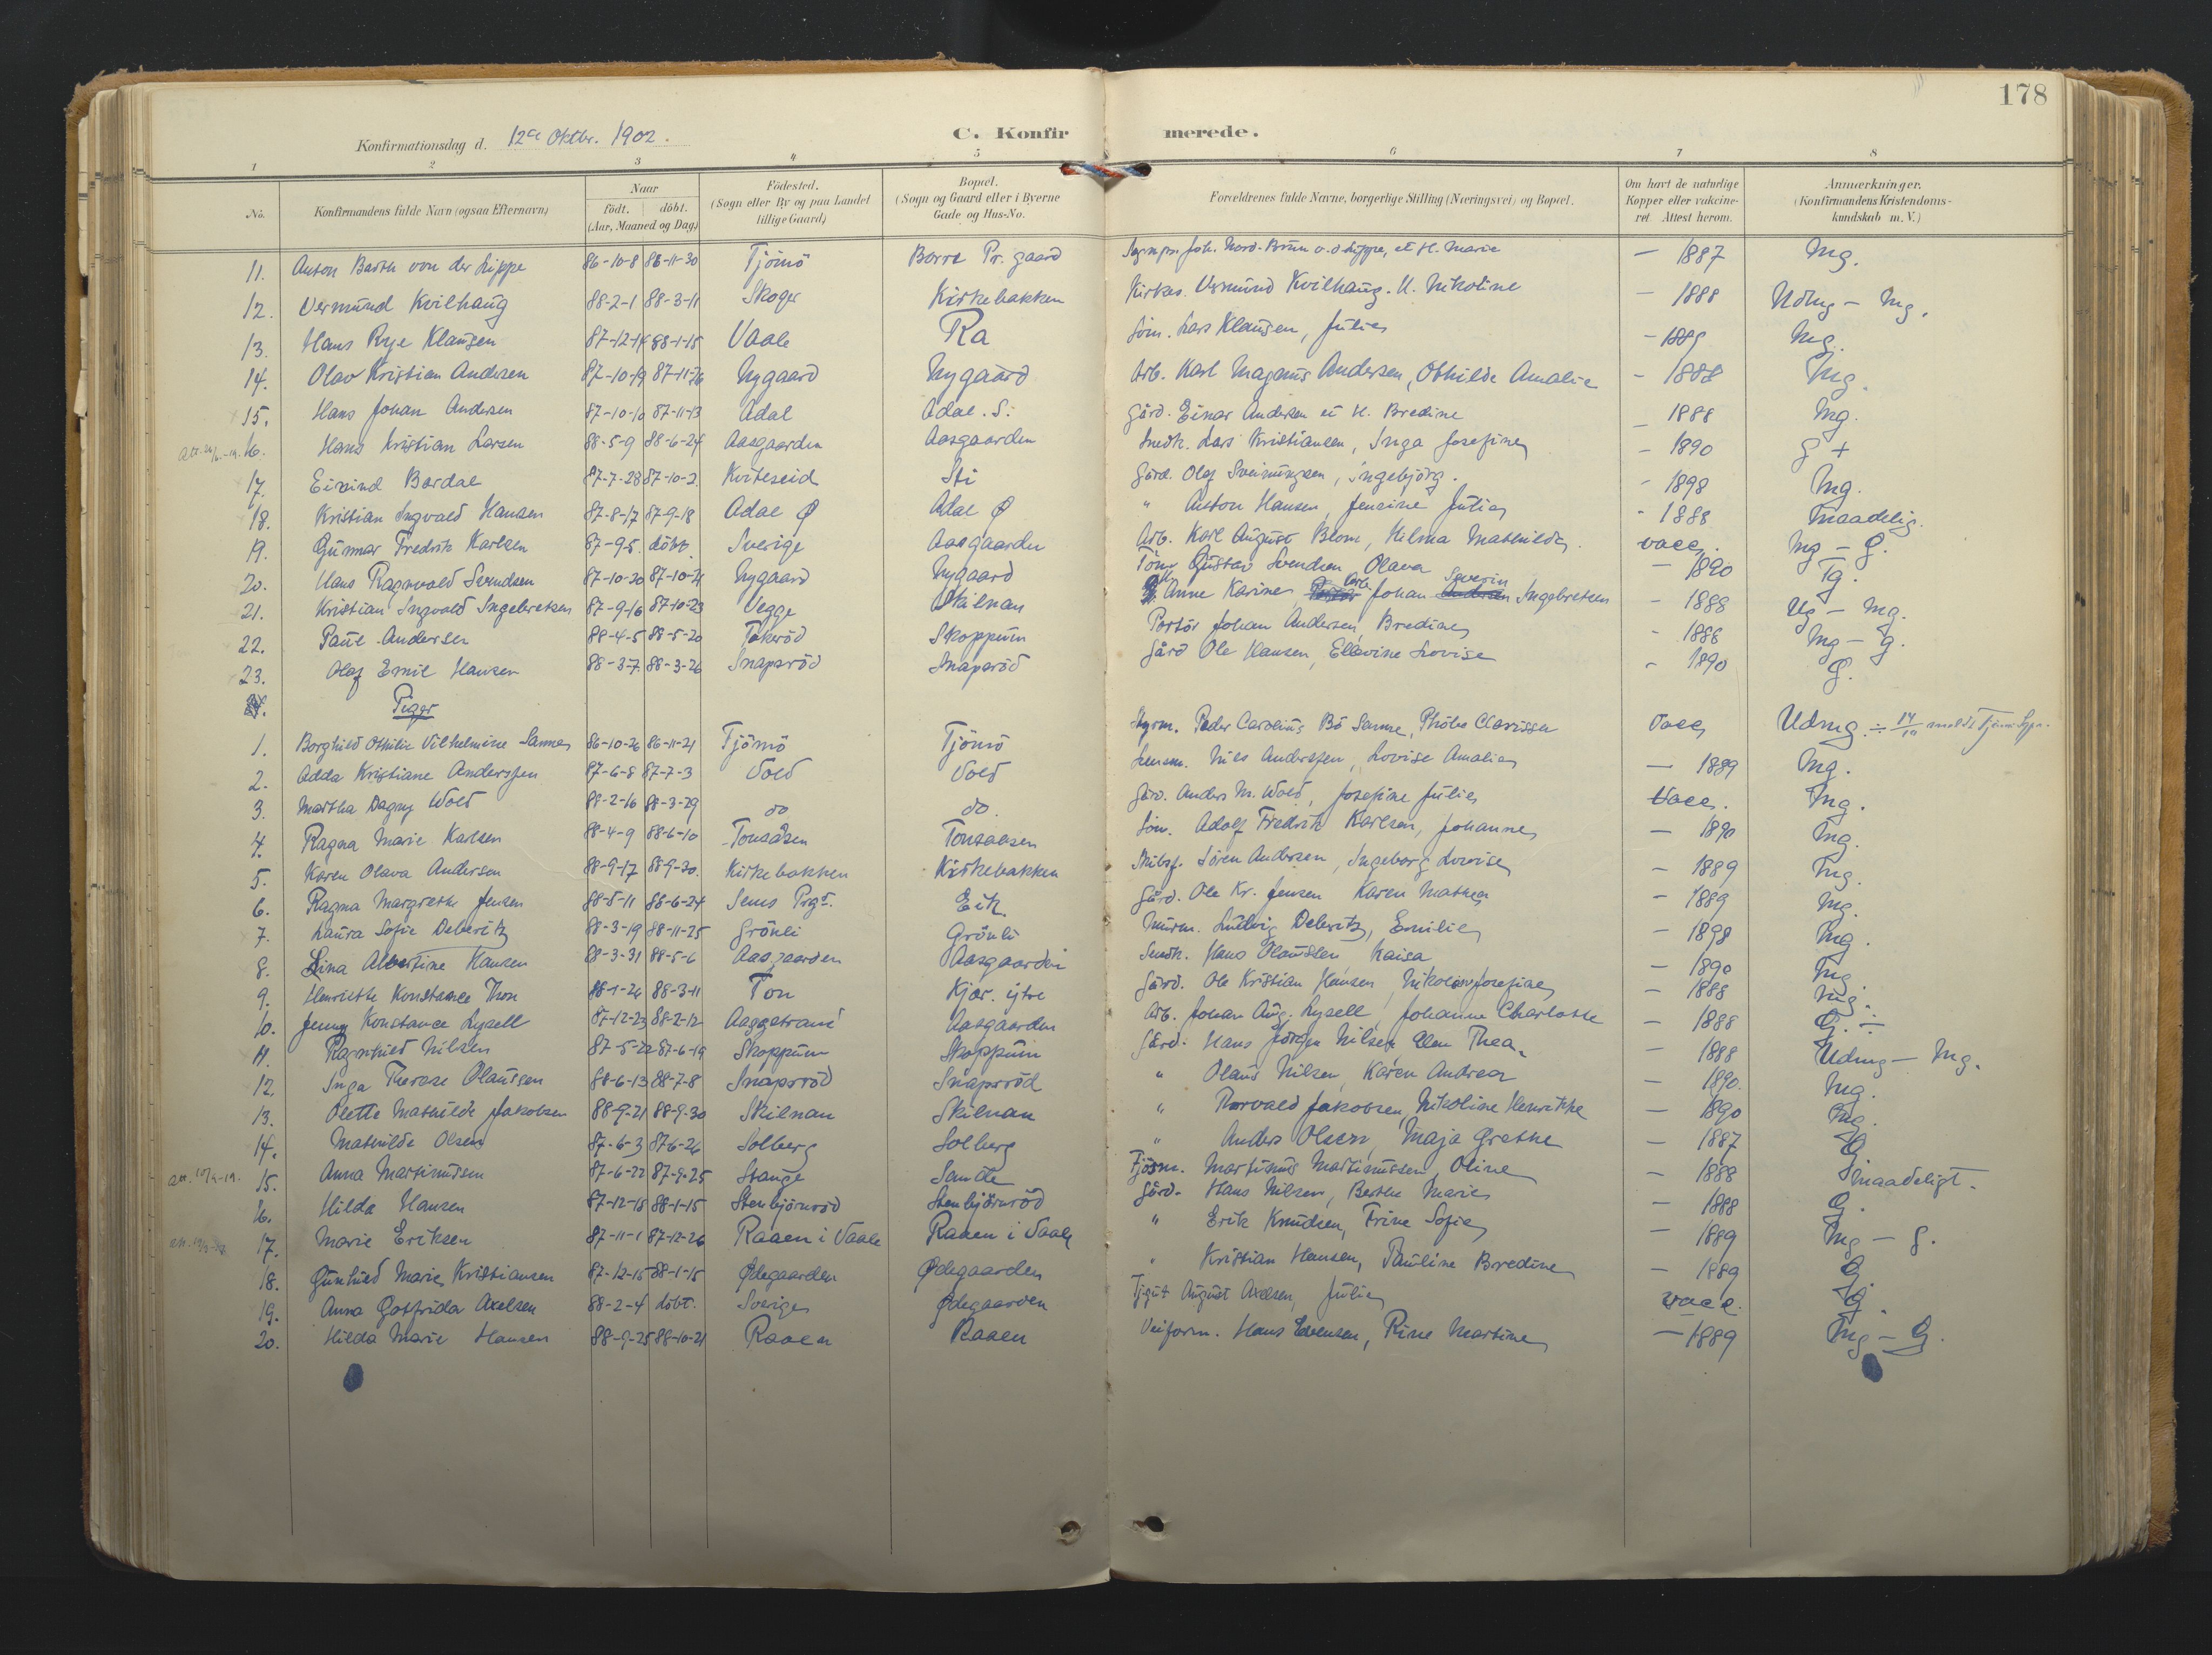 178
Konfirmationsdag d. 12te Oktbr. 1902. C. Konfir merede.
1 2 3 4 5 6 7 8
No. Konfirmandens fulde Navn (ogsaa Efternavn) Naar födt. döbt. (Aar, Maaned og Dag) Födested. (Sogn eller By og paa Landet tillige Gaard) Bopæl. (Sogn og Gaard eller i Byerne Gade og Hus-No. Forældrenes fulde Navne, borgerlige Stilling (Næringsvei) og Bopæl. Om havt de naturlige Kopper eller vakcineret Attest herom. Anmærkninger. (Konfirmandens Kristendomskundskab m. V.)
11. Anton Barth von der Lippe 86-10-8 86-11-30 Tjömö Borre Pr. gaard Sognepr. Joh. Nord. Brun v. d. Lippe, et H. Marie - 1887 Mg.
12. Vermund Kvilhaug 88-2-1 88-3-11 Skoger Kirkebakken Kirkes. Vermund Kvilhaug. H. Nikoline - 1888 Udmg - Mg.
13. Hans Rye Klausen 87-12-14 88-1-15 Vaale Ra Söm. Lars Klausen, Julie - 1889 Mg.
14. Olav Kristian Andersen 87-10-19 87-11-26 Nygaard Nygaard Arb. Karl Magnus Andersen, Othilde Amalie - 1888 Mg.
15. Hans Johan Andersen 87-10-10 87-11-13 Adal Adal. S. Gård. Einar Andersen et H. Bredine 1888 Mg.
16. Hans Kristian Larsen 88-5-9 88-6-24 Aasgaarden Aasgaarden Snedk. Lars Kristiansen, Inga Josefine - 1890 G +
17. Eivind Bordal 87-7-28 87-10-2. Kviteseid Sti Gård. Olaf Sveinungsen, Ingebjörg. - 1898 Mg.
18. Kristian Ingvald Hansen 87-8-17 87-9-18 Adal Ø Adal Ø " Anton Hansen, Jensine Julie - 1888 maadelig.
19. Gunnar Fredrik Karlsen 87-9-5. döbt. Sverige Aasgaarden Arb. Karl August Blom, Hilma Mathilde. vacc. Mg - G.
20. Hans Ragnvald Svendsen 87-10-20 87-10-21 Nygaard Nygaard Töm. Gustav Svendsen, Olava - 1890 Tg.
21. Kristian Ingvald Ingebretsen 87-9-16 87-10-23 Vegge Skilnan Anne Karine, Arb. Johan Severin Andersen Ingebretsen - 1888 Ug - Mg.
22. Paul Andersen 88-4-5 88-5-20 Tokeröd Skoppum Portör Johan Andersen, Bredine - 1888 Mg - G.
23. Olaf Emil Hansen 88-3-7. 88-3-26 Snapsröd Snapsröd Gård Ole Hansen, Ellevine Lovise - 1890 G.
Piger
1. Borghild Othilie Vilhelmine Sanne 86-10-26 86-11-21 Tjömö Tjömö Styrm. Peder Carolius Bö Sanne, Phöbe Clarissa Vacc. Udmg. ÷ 14/10 meldt Tjömö Sgpr.
2. Adda Kristiane Anderssen 87-6-8 87-7-3 Vold Vold Lensm. Nils Anderssen, Lovise Amalie - 1889 Mg.
3. Martha Dagny Wold 88-2-16 88-3-29 do do. Gård. Anders M. Wold, Josefine Julie Vacc. Mg.
4. Ragna Marie Karlsen 88-4-9 88-6-10 Tonsåsen Tonsaasen Söm. Adolf Fredrik Karlsen, Johanne - 1890 Mg.
5. Karen Olava Andersen 88-9-17 88-9-30. Kirkebakken Kirkebakken Skibsf. Sören Andersen, Ingeborg Lovise - 1889 Mg.
6. Ragna Margrethe Jensen 88-5-11 88-6-24 Sems Prgd. Eik Gård. Ole Kr. Jensen Karen Mathea - 1889 Mg.
7. Laura Sofie Deberitz 88-3-19 88-11-25 Grönli Grönli Murm. Ludvig Deberitz, Emilie - 1898 Mg.
8. Lina Albertine Hansen 88-3-31 88-5-6 Aasgaarden Aasgaarden Snedk. Hans Olaussen Kaisa - 1890 Mg.
9. Henriette Konstance Thon 88-1-24 88-3-11 Ton Kjær. ytre Gård. Ole Kristian Hansen, Nikoline Josefine - 1888 Mg.
10. Jenny Konstance Lysell 87-12-23 88-2-12 Aasgstrand Aasgaarden Arb. Johan Aug. Lysell, Johanne Charlotte - 1888 G. ÷
11. Ragnhild Nilsen 87-5-22 87-6-19 Skoppum Skoppum Gård. Hans Jörgen Nilsen, Elen Thea. - 1888 Udmg - Mg.
12. Inga Therese Olaussen 88-6-13 88-7-8 Snapsröd Snapsröd " Olaus Nilsen, Karen Andrea - 1890. Mg.
13. Olette Mathilde Jakobsen 88-9-21 88-9-30 Skilnan Skilnan " Torvald Jakobsen, Nikoline Henrikke - 1890 Mg.
14. Mathilde Olsen 87-6-3 87-6-26 Solberg Solberg " Anders Olsen, Maja Grethe - 1887 G
15. Anna Martinusen 87-6-22 87-9-25 Stange Sande Fjösm. Martinus Martinussen, Oline - 1888 maadeligt.
16. Hilda Hansen 87-12-18 88-1-15 Stenbjörnröd Stenbjörnröd Gård. Hans Nilsen, Berthe Marie - 1888 G.
17. Marie Eriksen 87-11-1 87-12-26 Raaen i Vaale Raaen i Vaale " Erik Knudsen, Trine Sofie - 1889 Mg - G.
18. Gunhild Marie Kristiansen 87-12-15 88-1-15 Ødegaarden Ødegaarden " Kristian Hansen, Pauline Bredine - 1889 G.
19. Anna Gotfrida Axelsen 88-2-4 döbt. Sverige Ødegaarden August Axelsen, Julie vacc. G.
20. Hilda Marie Hansen 88-9-25 88-10-21 Raaen Raaen Veiform. Hans Evensen, Rine Martine - 1889 Mg - G.